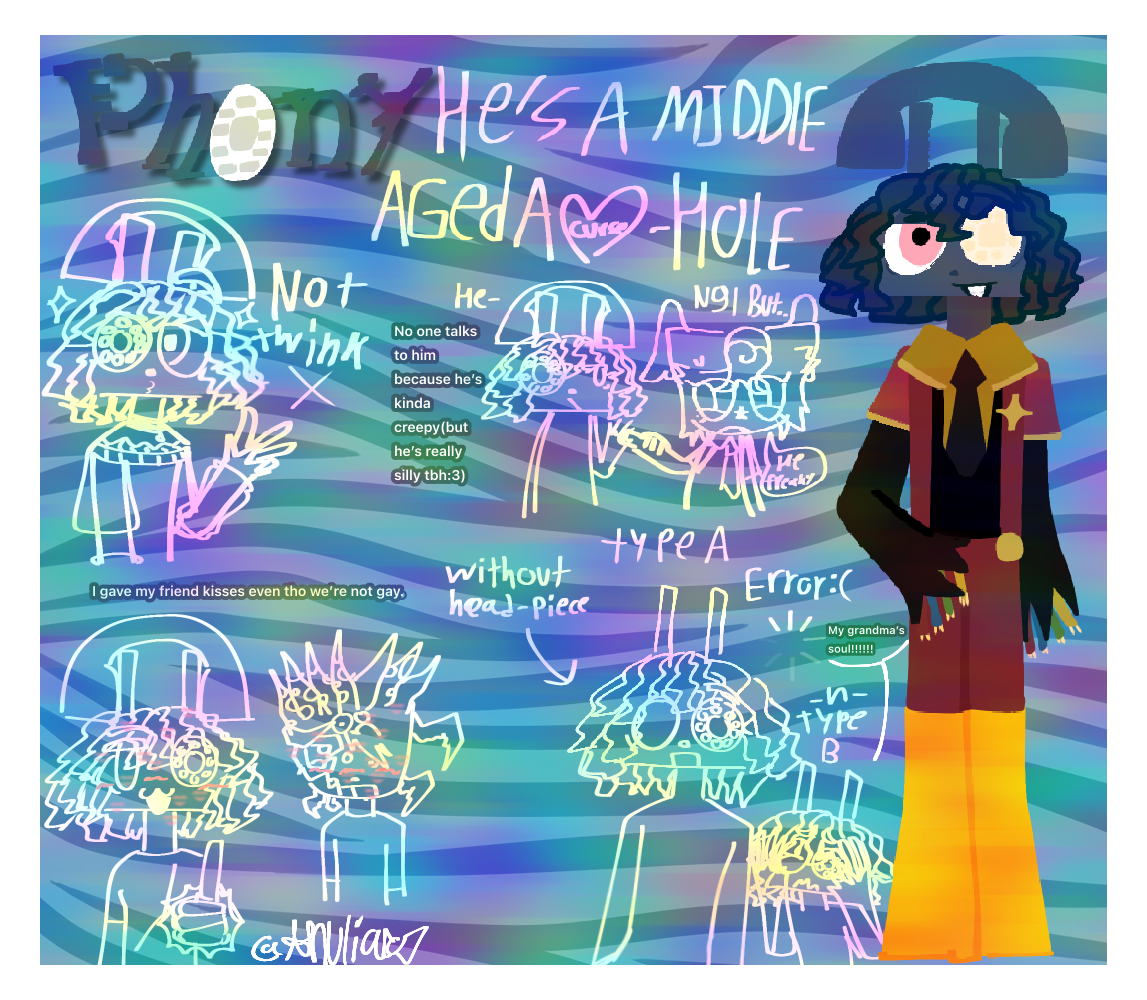 Phony
He's A MIDDlE
AGed A curse-HOLE
Not
twink
He-
No one talks
to him
because he's
kinda
creepy(but
he's really
silly tbh:3)
NgI But..
He
freaky
type A
without
head-piece
Error:(
My grandma's
soul!!!!!!
-n-
type
B
I gave my friend kisses even tho we're not gay.